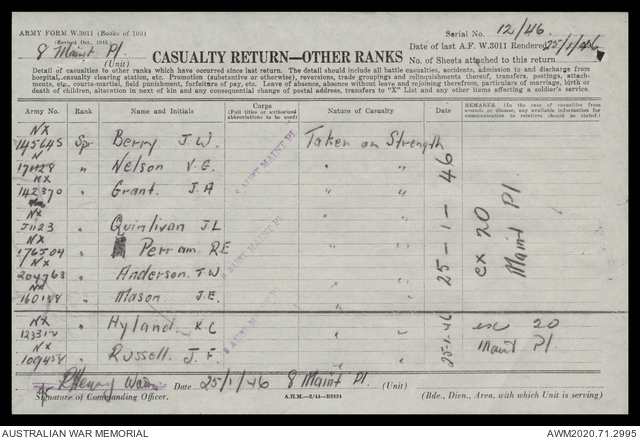 ARMY FORM W.3011 (Books of 100)
(Revised Oct., 1942.)
Serial No. 12/46.
8 Maint Pl.
(Unit)
CASUALTY RETURN—OTHER RANKS
Date of last A.F. W.3011 Rendered 25/1/46
No. of Sheets attached to this return
Detail of casualties to other ranks which have occurred since last return. The detail should include all battle casualties, accidents, admission to and discharge from
hospital, casualty clearing station, etc. Promotion (substantive or otherwise), reversions, trade groupings and relinquishments thereof, transfers, postings, attach-
ments, etc., courts-martial, field punishment, forfeiture of pay, etc. Leave of absence, absence without leave and rejoining therefrom, particulars of marriage, birth or
death of children, alteration in next of kin and any consequential change of postal address, transfers to "X" List and any other items affecting a soldier's service.
Army No. Rank Name and Initials Corps (Full titles or authorised abbreviations to be used) Nature of Casualty Date REMARKS. (In the case of casualties from wounds or disease, any available information for communication to relatives should be stated.)
NX
145645 Spr Berry J.W. Taken on Strength
N
" Nelson V.G. " "
NX
142370 " Grant J.A " "
NX
" Quinlivan J.L " "
NX
176504 " Perram RE " "
NX
204763 " Anderson T.W " "
NX
" Mason J.E. " "
25-1-46
ex 20
Maint Pl
8 AUST MAINT PL
NX
" Hyland K.C " "
NX
" Russell J.F. " "
25-1-46
ex 20
Maint Pl.
Date 25/1/46 8 Maint Pl. (Unit)
Signature of Commanding Officer.
A.H.M.—3/44—B5324
(Bde., Divn., Area, with which Unit is serving)
AUSTRALIAN WAR MEMORIAL
AWM2020.71.2995